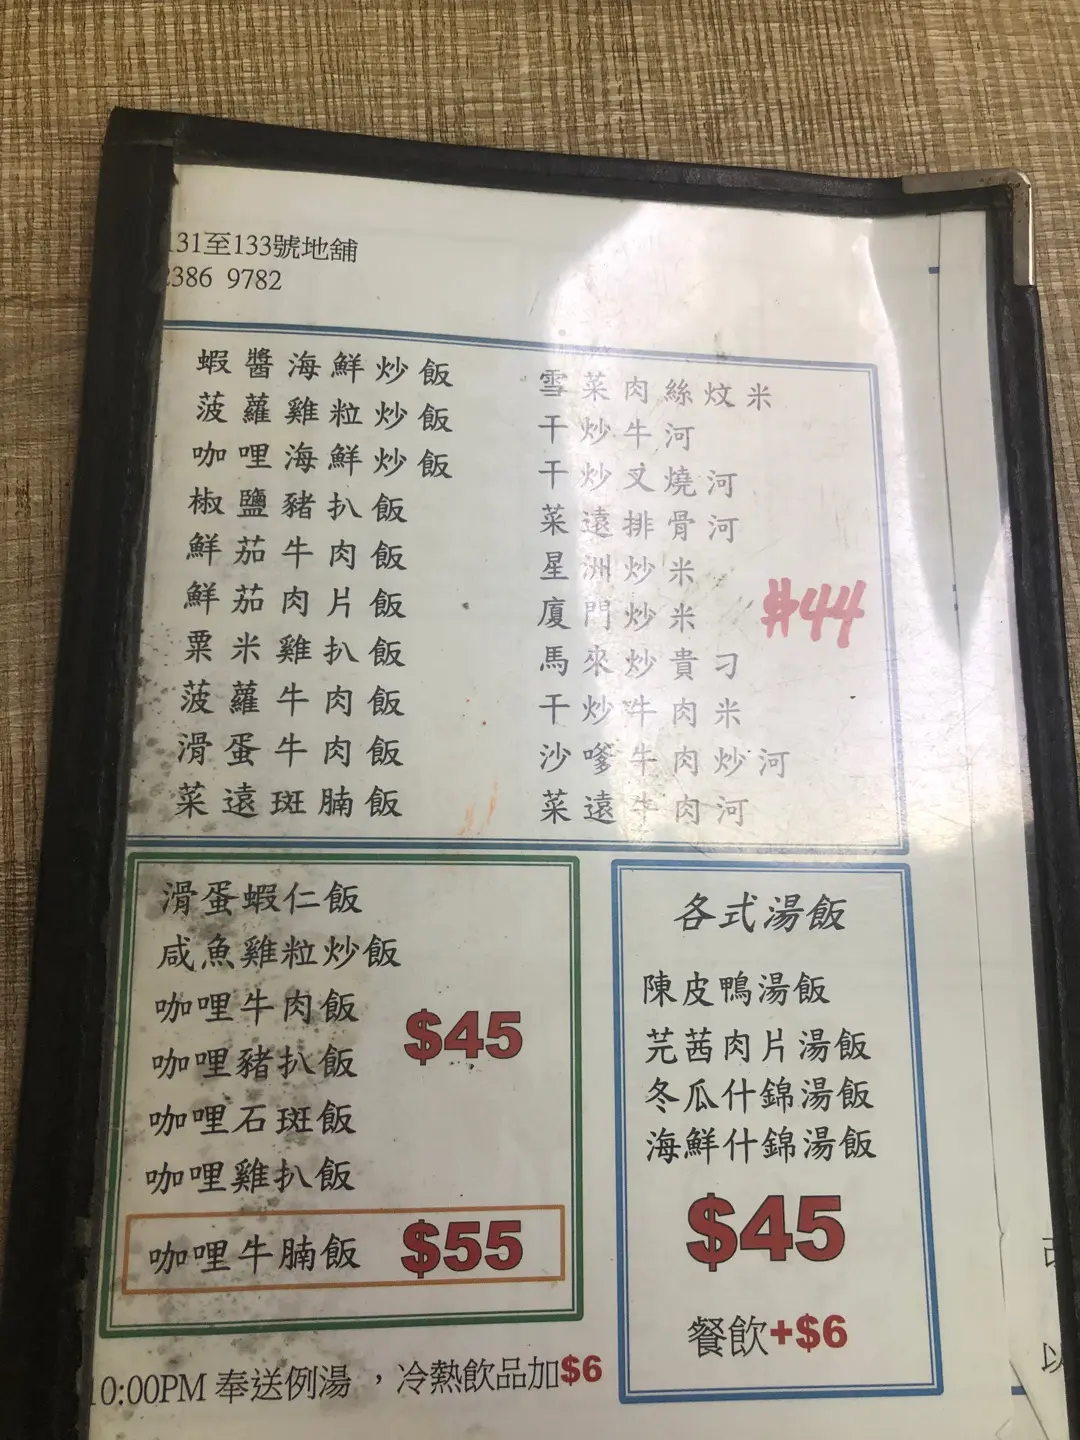 131至133號地舖
2386 9782
蝦醬海鮮炒飯
菠蘿雞粒炒飯
咖哩海鮮炒飯
椒鹽豬扒飯
鮮茄牛肉飯
鮮茄肉片飯
粟米雞扒飯
菠蘿牛肉飯
滑蛋牛肉飯
菜遠斑腩飯
雪菜肉絲炆米
干炒牛河
干炒叉燒河
菜遠排骨河
星洲炒米
廈門炒米
馬來炒貴刁
干炒牛肉米
沙嗲牛肉炒河
菜遠牛肉河
$44
滑蛋蝦仁飯
咸魚雞粒炒飯
咖哩牛肉飯
咖哩豬扒飯
咖哩石斑飯
咖哩雞扒飯
$45
咖哩牛腩飯 $55
各式湯飯
陳皮鴨湯飯
芫茜肉片湯飯
冬瓜什錦湯飯
海鮮什錦湯飯
$45
餐飲+$6
10:00PM 奉送例湯 ，冷熱飲品加$6